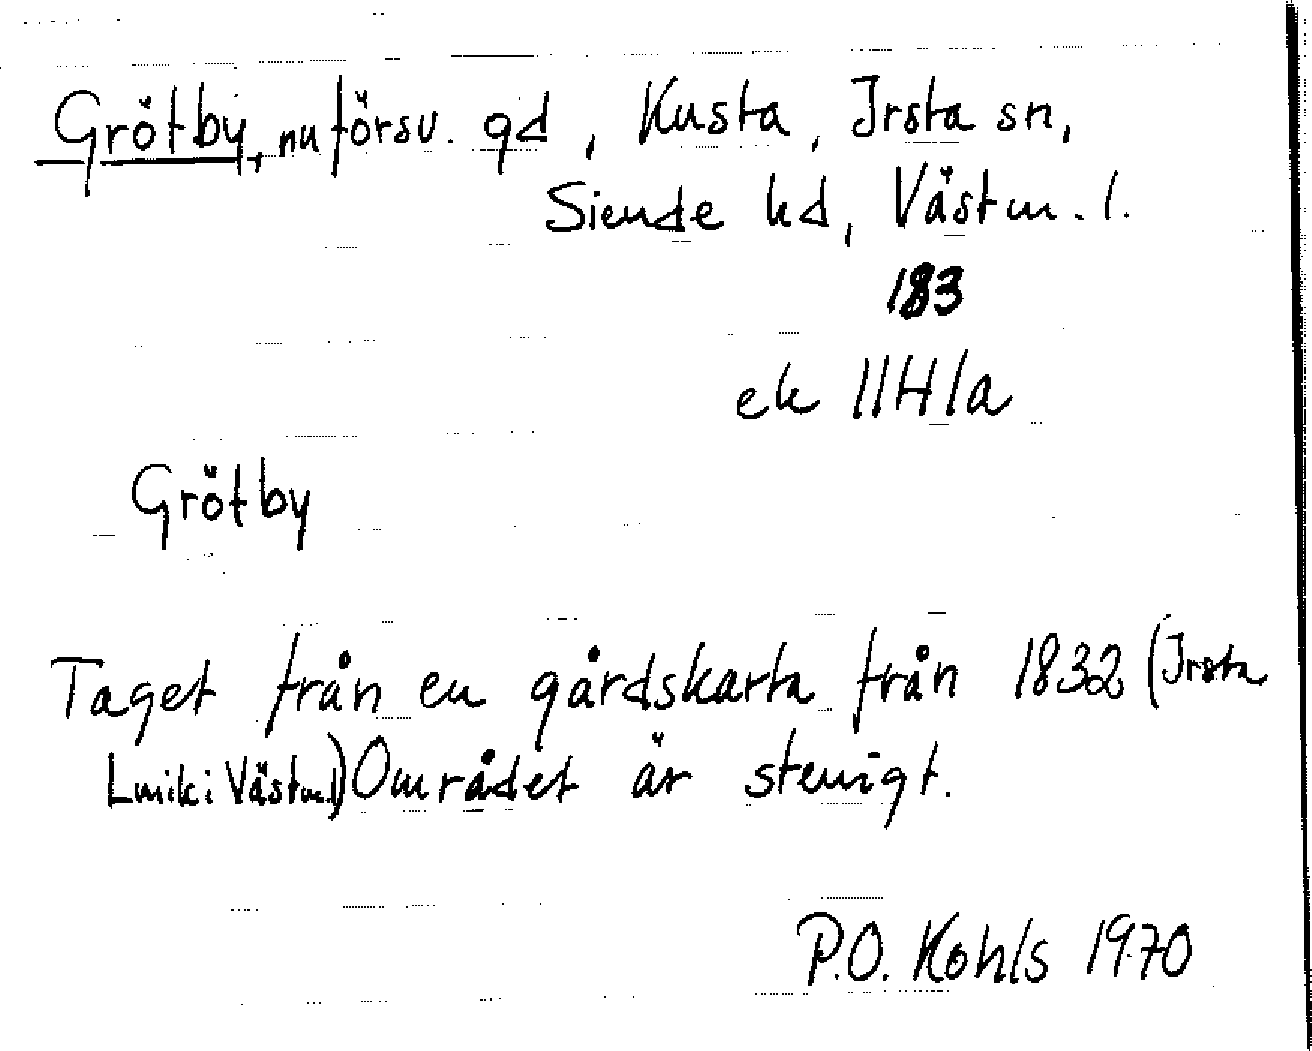 Grötby, nu försv. gd, Kusta, Irsta sn,
Siende hd, Västm. l.
183
ek 11H1a
Grötby
Taget från en gårdskarta från 1832 (Irsta
Lmik: Västm.) Området är stenigt.
P.O. Kohls 1970